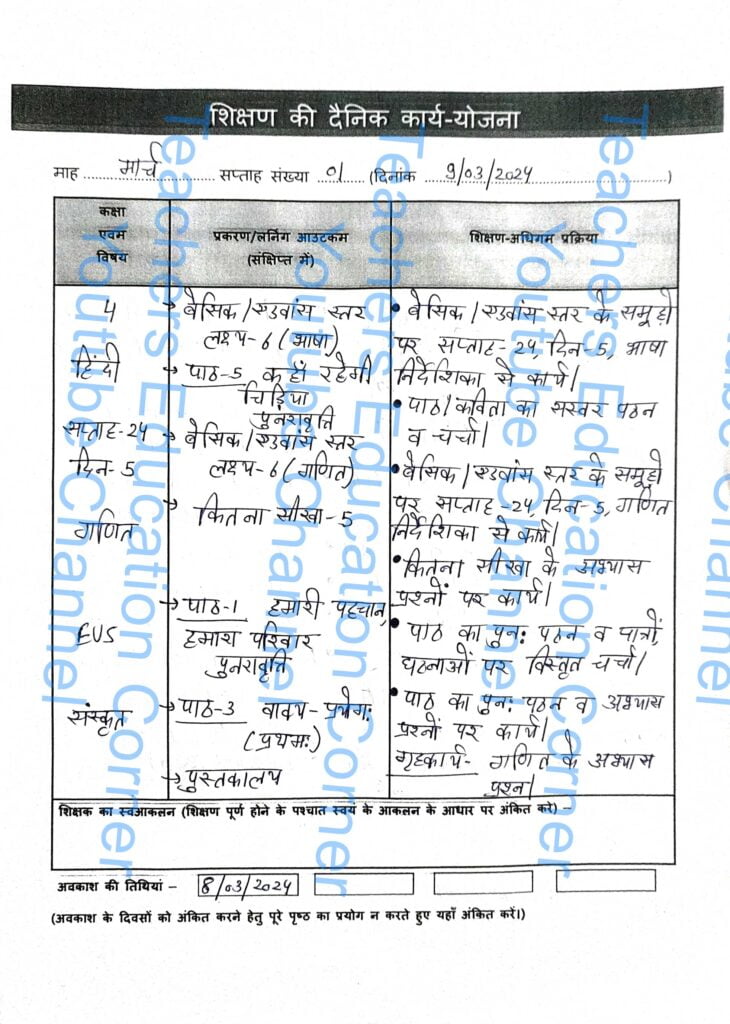 शिक्षण की दैनिक कार्य-योजना
माह मार्च सप्ताह संख्या 01 (दिनांक 9/03/2024)
कक्षा एवम विषय
प्रकरण/लर्निंग आउटकम (संक्षिप्त में)
शिक्षण-अधिगम प्रक्रिया
4
हिंदी
सप्ताह-24
दिन-5
गणित
EVS
संस्कृत
→ बेसिक/एडवांस स्तर
लक्ष्य-6 (भाषा)
→ पाठ-5 कहाँ रहेगी
चिड़िया
पुनरावृत्ति
→ बेसिक/एडवांस स्तर
लक्ष्य-6 (गणित)
→ कितना सीखा-5
→ पाठ-1 हमारी पहचान,
हमारा परिवार
पुनरावृत्ति
→ पाठ-3 वाक्य-प्रयोगः
(प्रथमः)
→ पुस्तकालय
• बेसिक/एडवांस स्तर के समूहों
पर सप्ताह-24, दिन-5, भाषा
निर्देशिका से कार्य।
• पाठ/कविता का सस्वर पठन
व चर्चा।
• बेसिक/एडवांस स्तर के समूहों
पर सप्ताह-24, दिन-5, गणित
निर्देशिका से कार्य।
• कितना सीखा के अभ्यास
प्रश्नों पर कार्य।
• पाठ का पुनः पठन व पात्रों,
घटनाओं पर विस्तृत चर्चा।
• पाठ का पुनः पठन व अभ्यास
प्रश्नों पर कार्य।
गृहकार्य- गणित के अभ्यास
प्रश्न।
शिक्षक का स्वआकलन (शिक्षण पूर्ण होने के पश्चात स्वयं के आकलन के आधार पर अंकित करे) –
अवकाश की तिथियां – 8/03/2024
(अवकाश के दिवसों को अंकित करने हेतु पूरे पृष्ठ का प्रयोग न करते हुए यहाँ अंकित करें।)
Teachers Education Corner
Youtube Channel
Teachers Education Corner
Youtube Channel
Teachers Education Corner
Youtube Channel